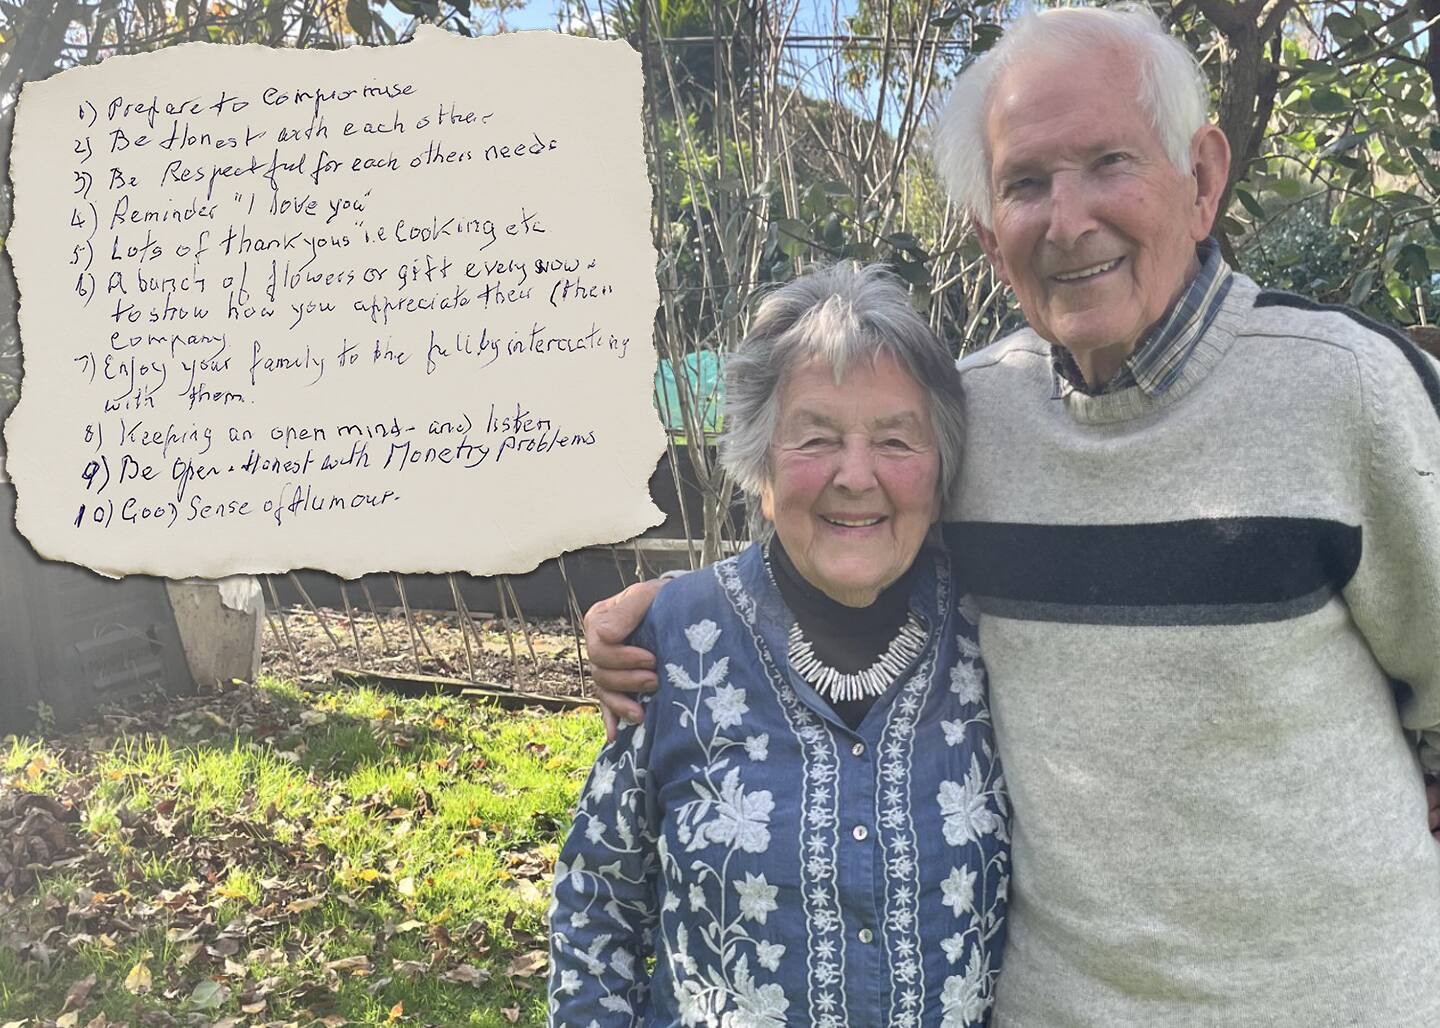 1) Prepare to Compromise
2) Be Honest with each other
3) Be Respectful for each others needs
4) Reminder "I love you"
5) Lots of thankyous "i.e cooking etc
6) A bunch of flowers or gift every now &
to show how you appreciate their (then
company.
7) Enjoy your family to the full by interacting
with them.
8) Keeping an open mind - and listen
9) Be Open & Honest with Monetry Problems
10) Good Sense of Humour.